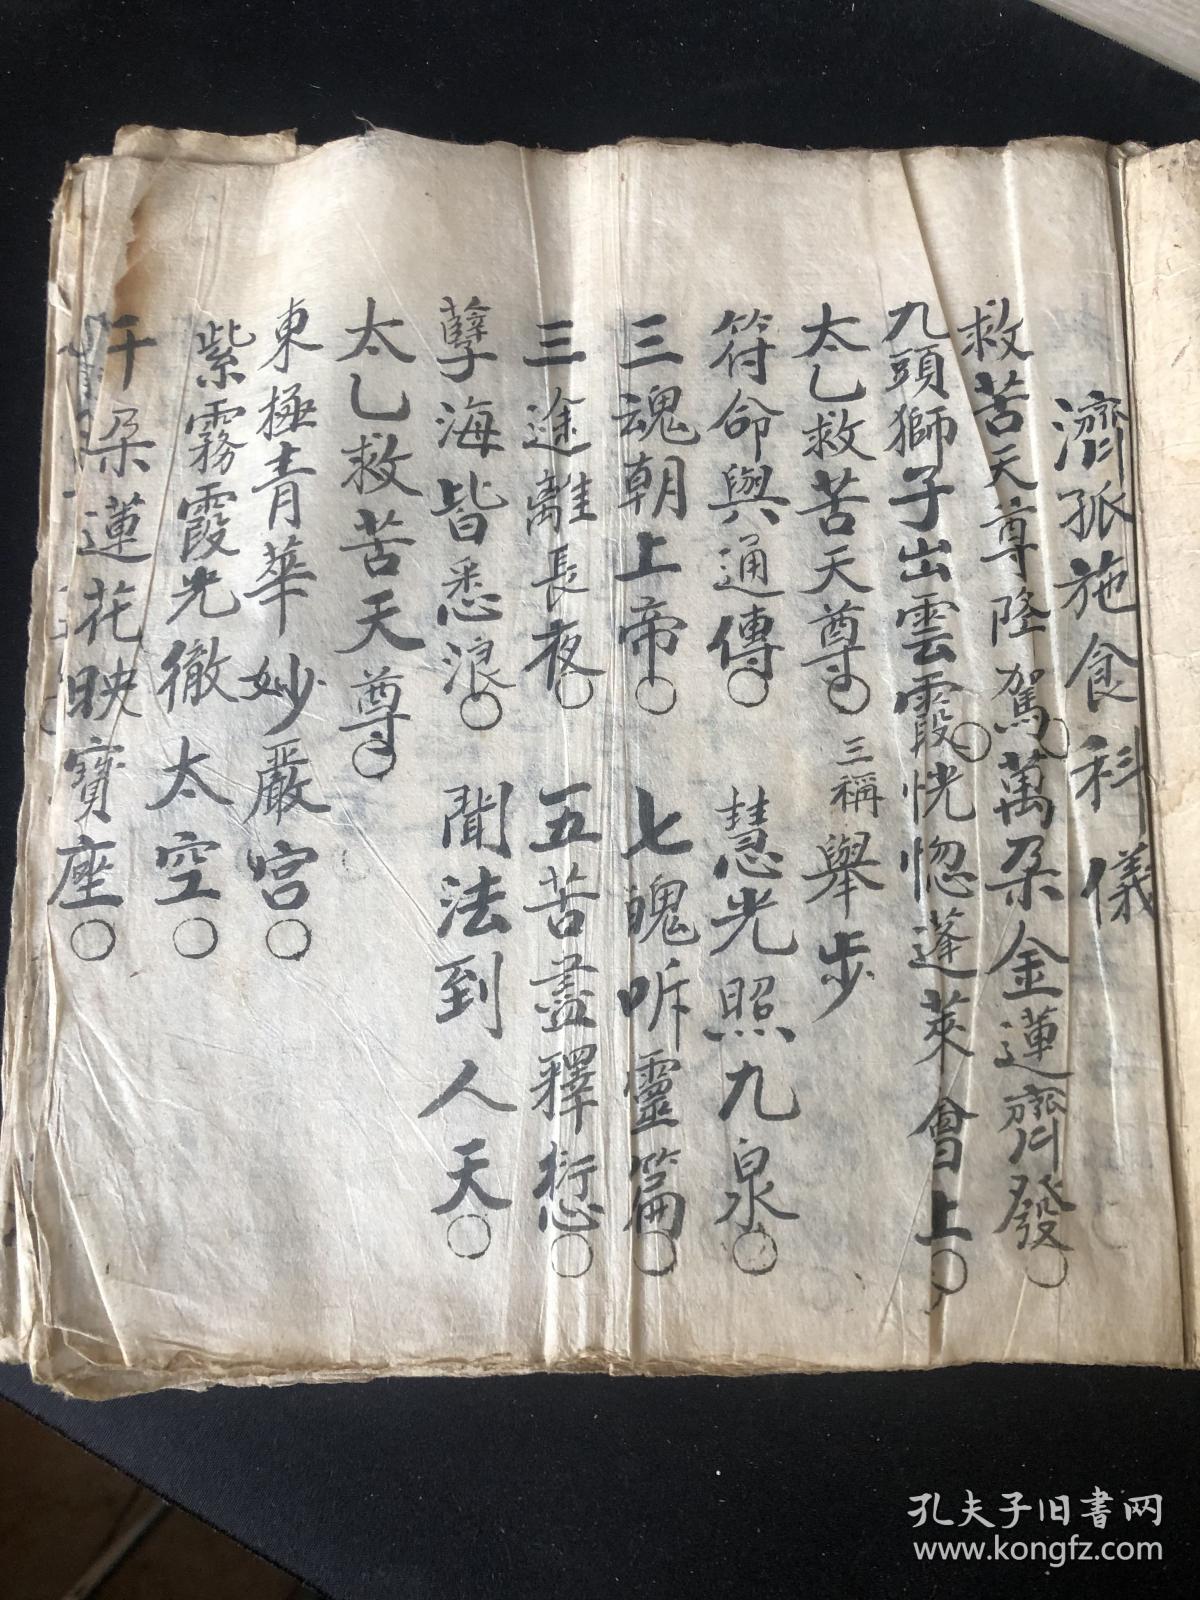 濟孤施食科儀
救苦天尊隆駕○萬朶金蓮齊發○
九頭獅子出雲霞○恍惚蓬萊會上○
太乙救苦天尊○三稱舉步
符命與通傳○慧光照九泉○
三魂朝上帝○七魄听靈篇○
三途離長夜○五苦盡釋愆○
孽海皆悉浪○聞法到人天○
太乙救苦天尊○
東極青華妙嚴宮○
紫霧霞光徹太空○
千朶蓮花映寶座○
孔夫子旧书网
www.kongfz.com